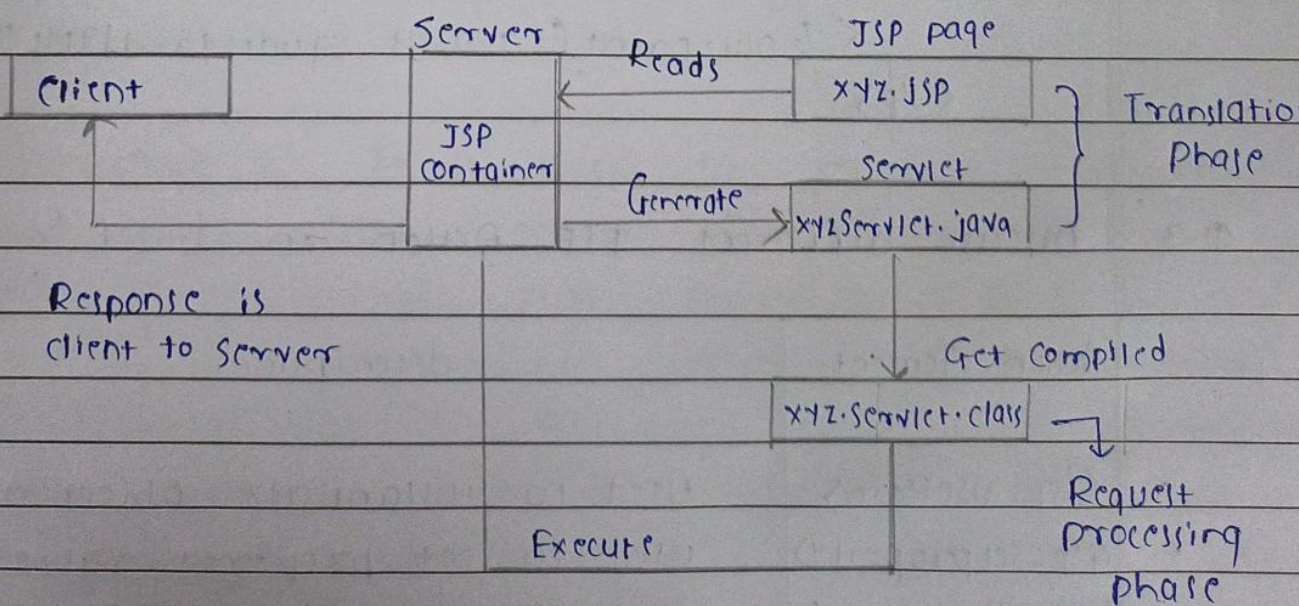 Server
JSP page
Client
Reads
xyz.JSP
Translatio
Phase
JSP
container
Servlet
Generate
xyzServlet.java
Response is
client to server
Get compiled
xyz.servlet.class
Request
processing
phase
Execute